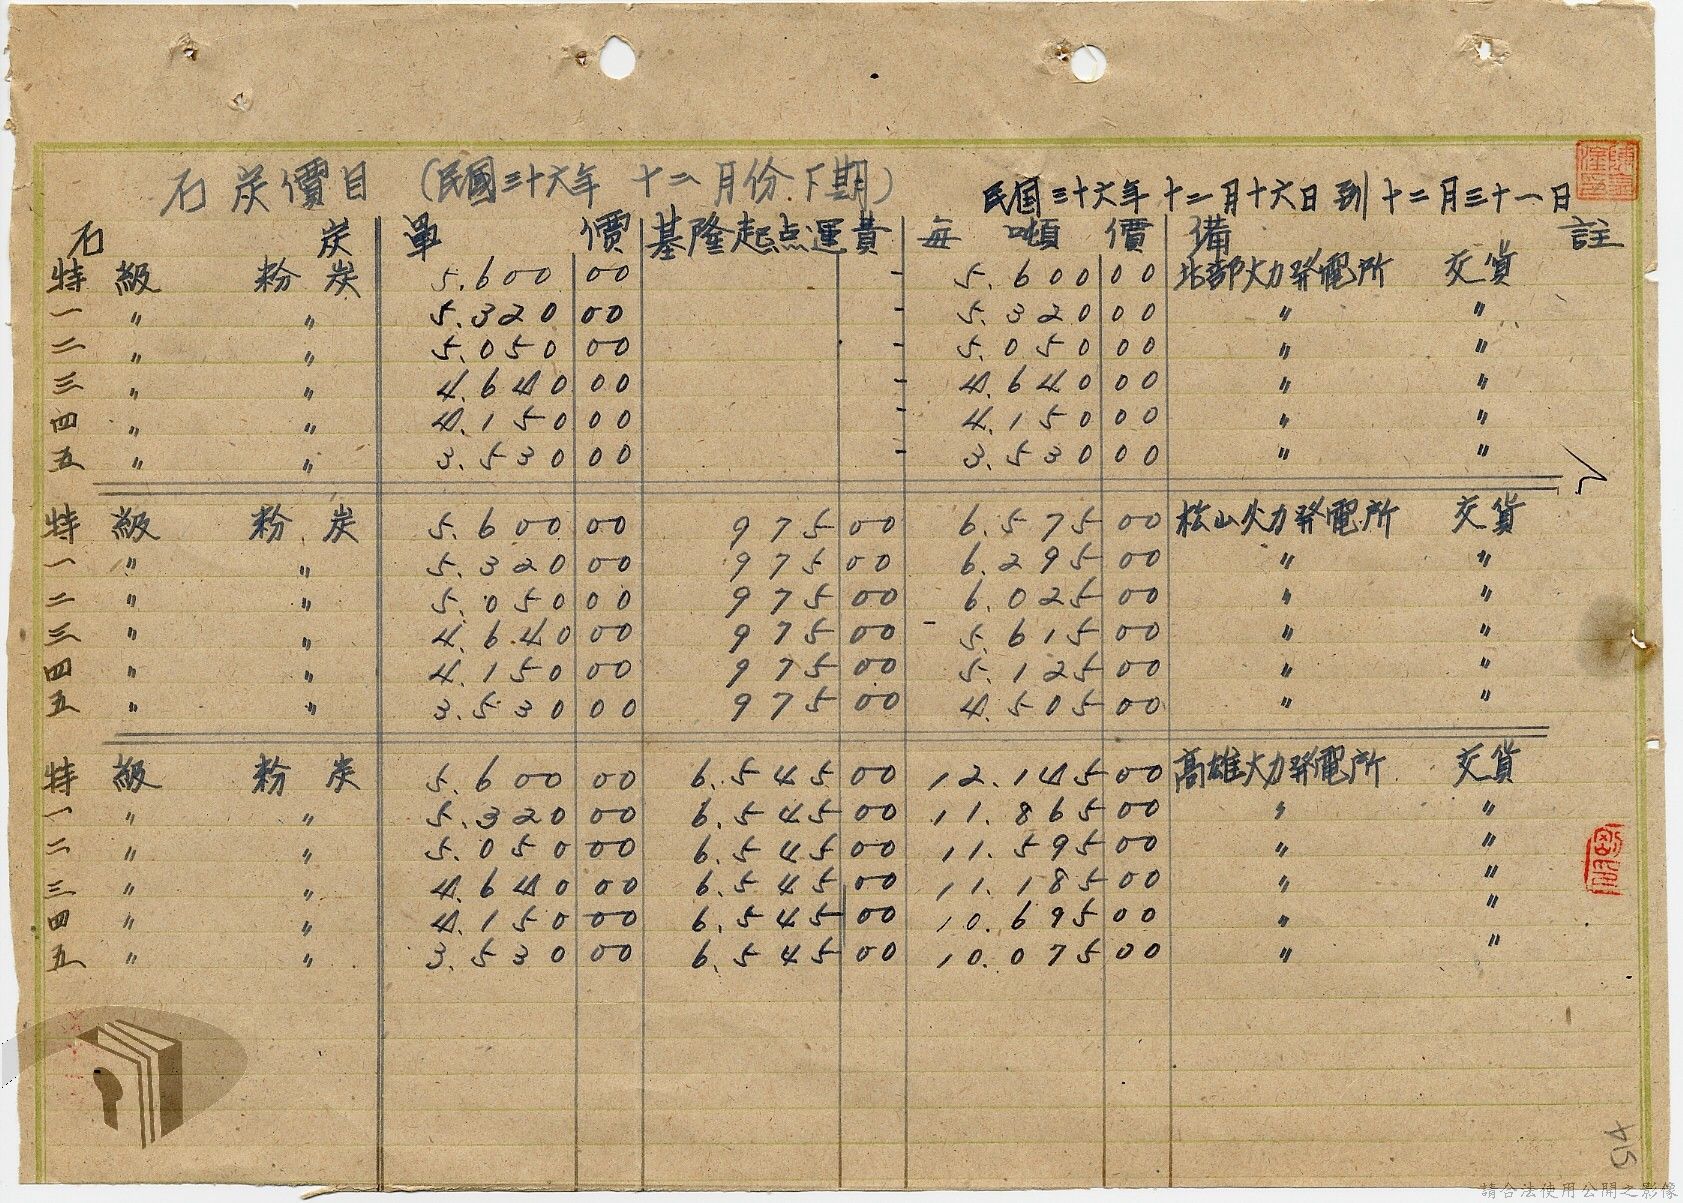 石炭價目 (民國三十六年 十二月份下期)
民国三十六年十二月十六日到十二月三十一日
石炭 單價 基隆起点運費 每噸價 備註
特級粉炭 5.600 00 - 5.600 00 北部火力発電所 交貨
一 〃 〃 5.320 00 - 5.320 00 〃 〃
二 〃 〃 5.050 00 - 5.050 00 〃 〃
三 〃 〃 4.640 00 - 4.640 00 〃 〃
四 〃 〃 4.150 00 - 4.150 00 〃 〃
五 〃 〃 3.530 00 - 3.530 00 〃 〃
特級粉炭 5.600 00 975 00 6.575 00 松山火力発電所 交貨
一 〃 〃 5.320 00 975 00 6.295 00 〃 〃
二 〃 〃 5.050 00 975 00 6.025 00 〃 〃
三 〃 〃 4.640 00 975 00 5.615 00 〃 〃
四 〃 〃 4.150 00 975 00 5.125 00 〃 〃
五 〃 〃 3.530 00 975 00 4.505 00 〃 〃
特級粉炭 5.600 00 6.545 00 12.145 00 高雄火力発電所 交貨
一 〃 〃 5.320 00 6.545 00 11.865 00 〃 〃
二 〃 〃 5.050 00 6.545 00 11.595 00 〃 〃
三 〃 〃 4.640 00 6.545 00 11.185 00 〃 〃
四 〃 〃 4.150 00 6.545 00 10.695 00 〃 〃
五 〃 〃 3.530 00 6.545 00 10.075 00 〃 〃
請合法使用公開之影像